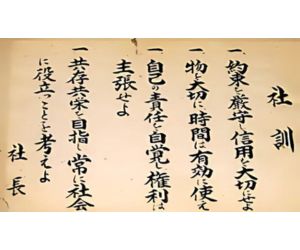 社訓
一、約束を厳守し信用を大切にせよ
一物を大切に、時間は有効に使え
一自己の責任を自覚し権利は
主張せよ
一共存共栄を目指し常に社会
に役立つことを考えよ
社長